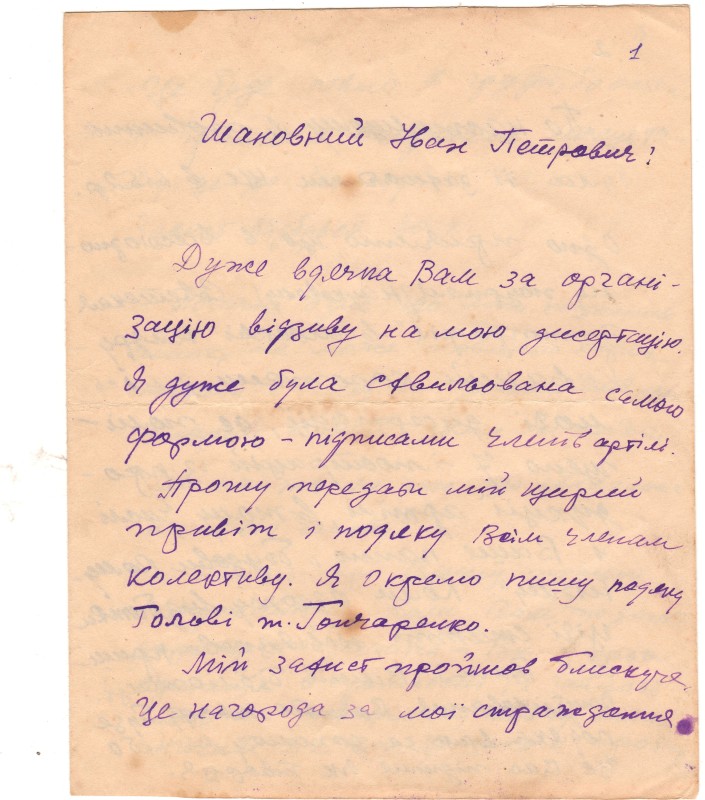 1
Шановний Іван Петрович!
Дуже вдячна Вам за органі-
зацію відзиву на мою дисертацію.
Я дуже була схвильована самою
формою – підписами членів артілі.
Прошу передати мій щирий
привіт і подяку Всім членам
колективу. Я окремо пишу подяку
Голові т. Гончаренко.
Мій захист пройшов блискуче.
Це нагорода за мої страждання